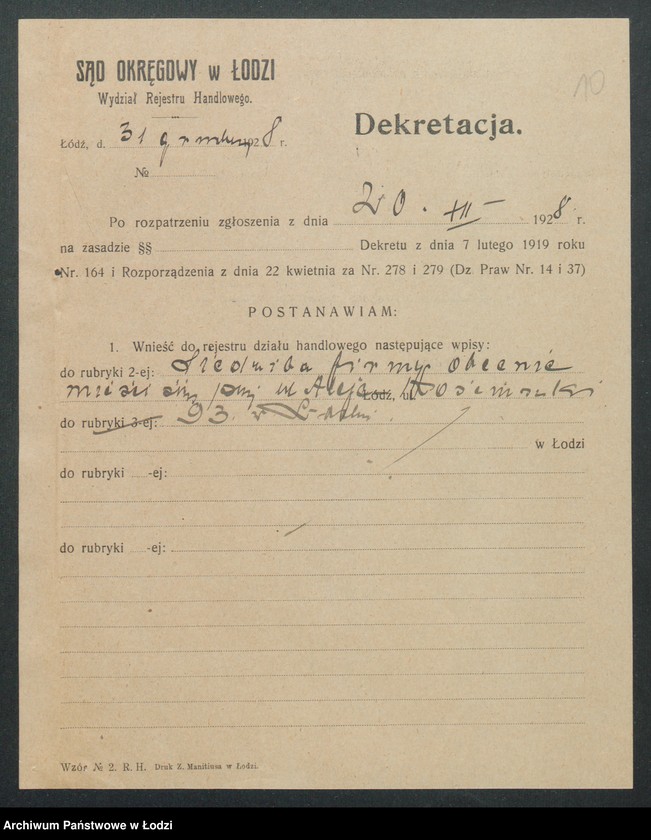 SĄD OKRĘGOWY w ŁODZI
Wydział Rejestru Handlowego.
10
Dekretacja.
Łódź, d. 31 grudnia 1928 r.
№
Po rozpatrzeniu zgłoszenia z dnia 20. XII 1928 r.
na zasadzie §§ Dekretu z dnia 7 lutego 1919 roku
Nr. 164 i Rozporządzenia z dnia 22 kwietnia za Nr. 278 i 279 (Dz. Praw Nr. 14 i 37)
POSTANAWIAM:
1. Wnieść do rejestru działu handlowego następujące wpisy:
do rubryki 2-ej: Siedziba firmy obecnie
mieści się przy ul Aleja Łódź, ul. Kościuszki
do rubryki 3-ej: 93 w Łodzi
w Łodzi
do rubryki -ej:
do rubryki -ej:
Wzór № 2. R. H. Druk Z. Manitiusa w Łodzi.
Archiwum Państwowe w Łodzi